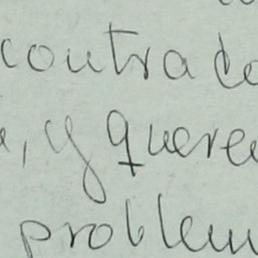 contra
, y quere
problem